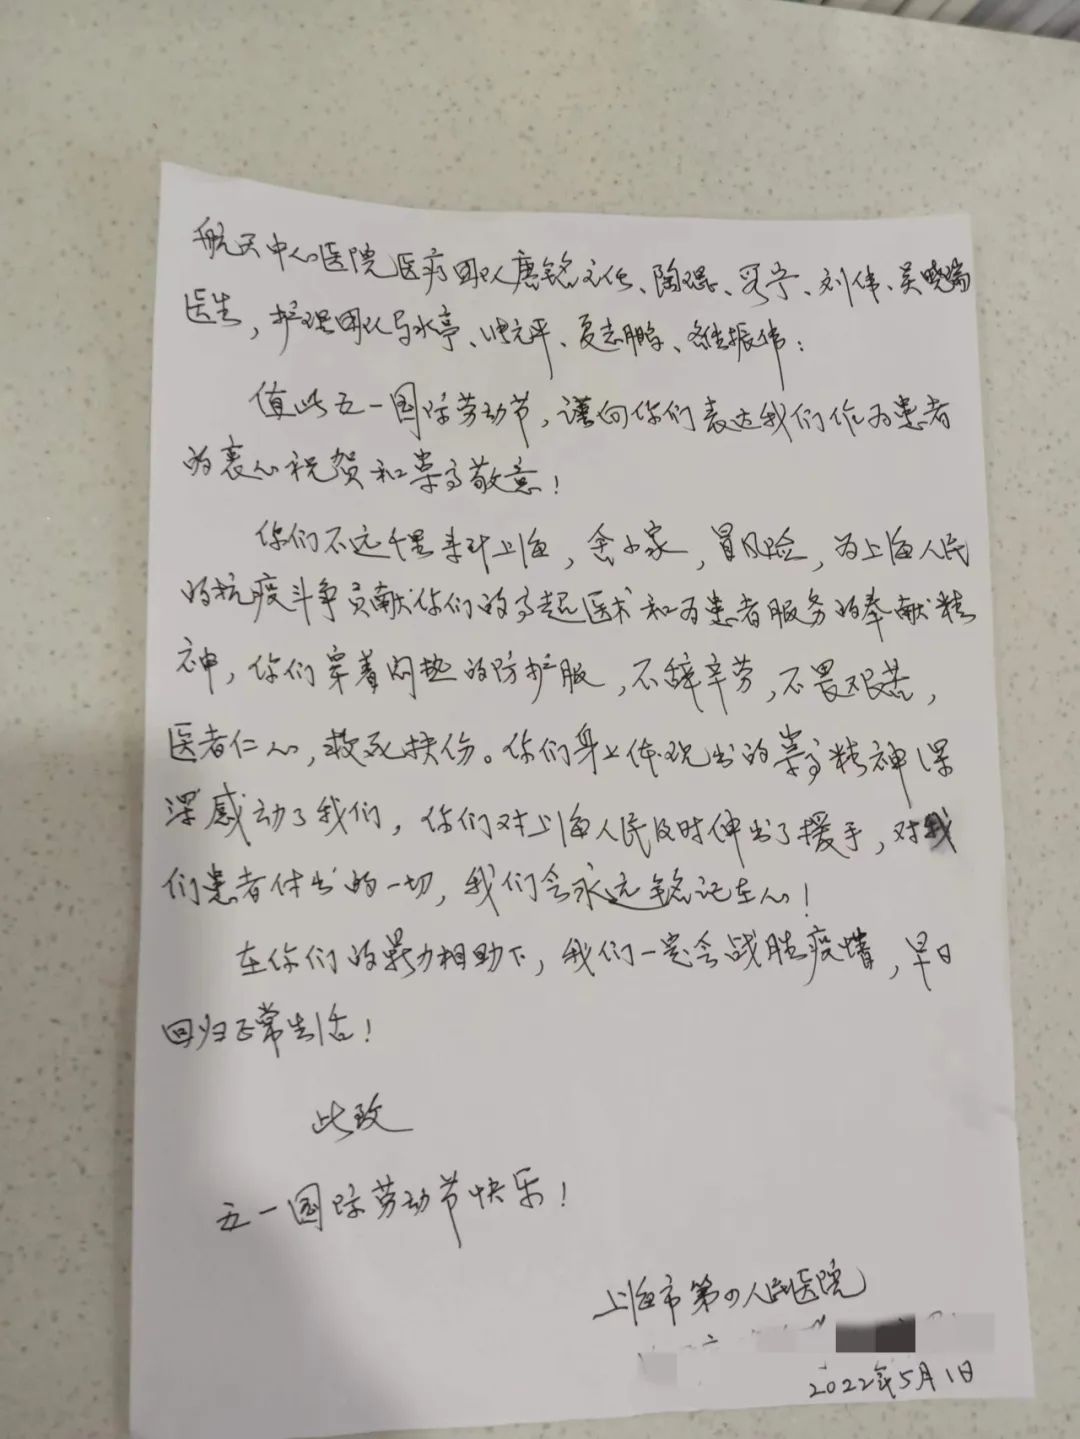 航天中心医院医疗团队唐铭主任、陶琨、吴宁、刘伟、吴晓瑞
医生，护理团队马水亭、张元平、夏志鹏、佟振伟：
值此五一国际劳动节，谨向你们表达我们作为患者
的衷心祝贺和崇高敬意！
你们不远千里来到上海，舍小家，冒风险，为上海人民
的抗疫斗争贡献你们的高超医术和为患者服务的奉献精
神，你们穿着闷热的防护服，不辞辛劳，不畏艰苦，
医者仁心，救死扶伤。你们身上体现出的崇高精神深
深感动了我们，你们对上海人民及时伸出了援手，对我
们患者付出的一切，我们会永远铭记在心！
在你们的鼎力相助下，我们一定会战胜疫情，早日
回归正常生活！
此致
五一国际劳动节快乐！
上海市第四人民医院
2022年5月1日